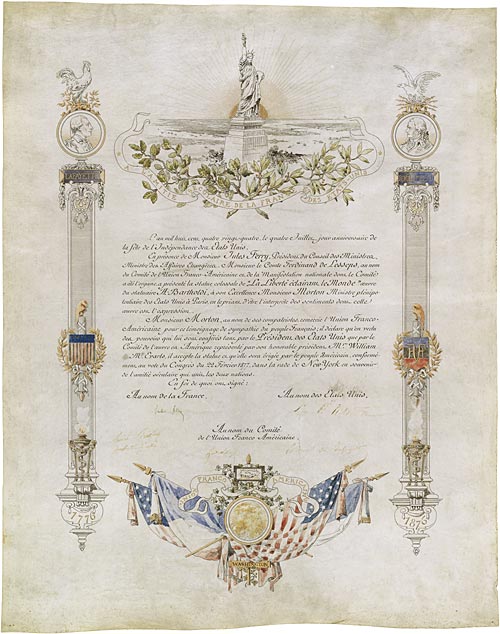 LAFAYETTE
CENTENAIRE DE LA FRANCE
DES ETATS UNIS
L'an mil huit cent quatre vingt-quatre, le quatre Juillet, jour anniversaire de
la fête de l'Indépendance des États Unis.
En présence de Monsieur Jules Ferry, Président du Conseil des Ministres
Ministre des Affaires Étrangères. Monsieur le Comte Ferdinand de Lesseps, au nom
du Comité de l'Union Franco-Américaine et de la Manifestation nationale dont le Comité
a été l'organe, a présenté la statue colossale de La Liberté éclairant le Monde œuvre
du statuaire A. Bartholdi, à son Excellence Monsieur Morton Ministre plénipo-
tentiaire des États Unis à Paris, en le priant d'être l'interprète des sentiments dont cette
œuvre est l'expression.
Monsieur Morton, au nom de ses compatriotes, remercie l'Union Franco-
Américaine pour ce témoignage de sympathie du peuple Français; il déclare qu'en vertu
des pouvoirs qui lui sont conférés tant par le Président des États Unis que par le
Comité de l'œuvre en Amérique représenté par son honorable président, Mr. William
Mr. Evarts, il accepte la statue et qu'elle sera érigée par le peuple Américain, conformé-
ment au vote du Congrès du 22 Février 1877, dans la rade de New York en souvenir
de l'amitié séculaire qui unit les deux nations.
En foi de quoi ont signé:
Au nom de la France,
Au nom des États Unis,
Au nom du Comité
de l'Union Franco Américaine,
FRANCO AMERICAINE
1776
1876
WASHINGTON